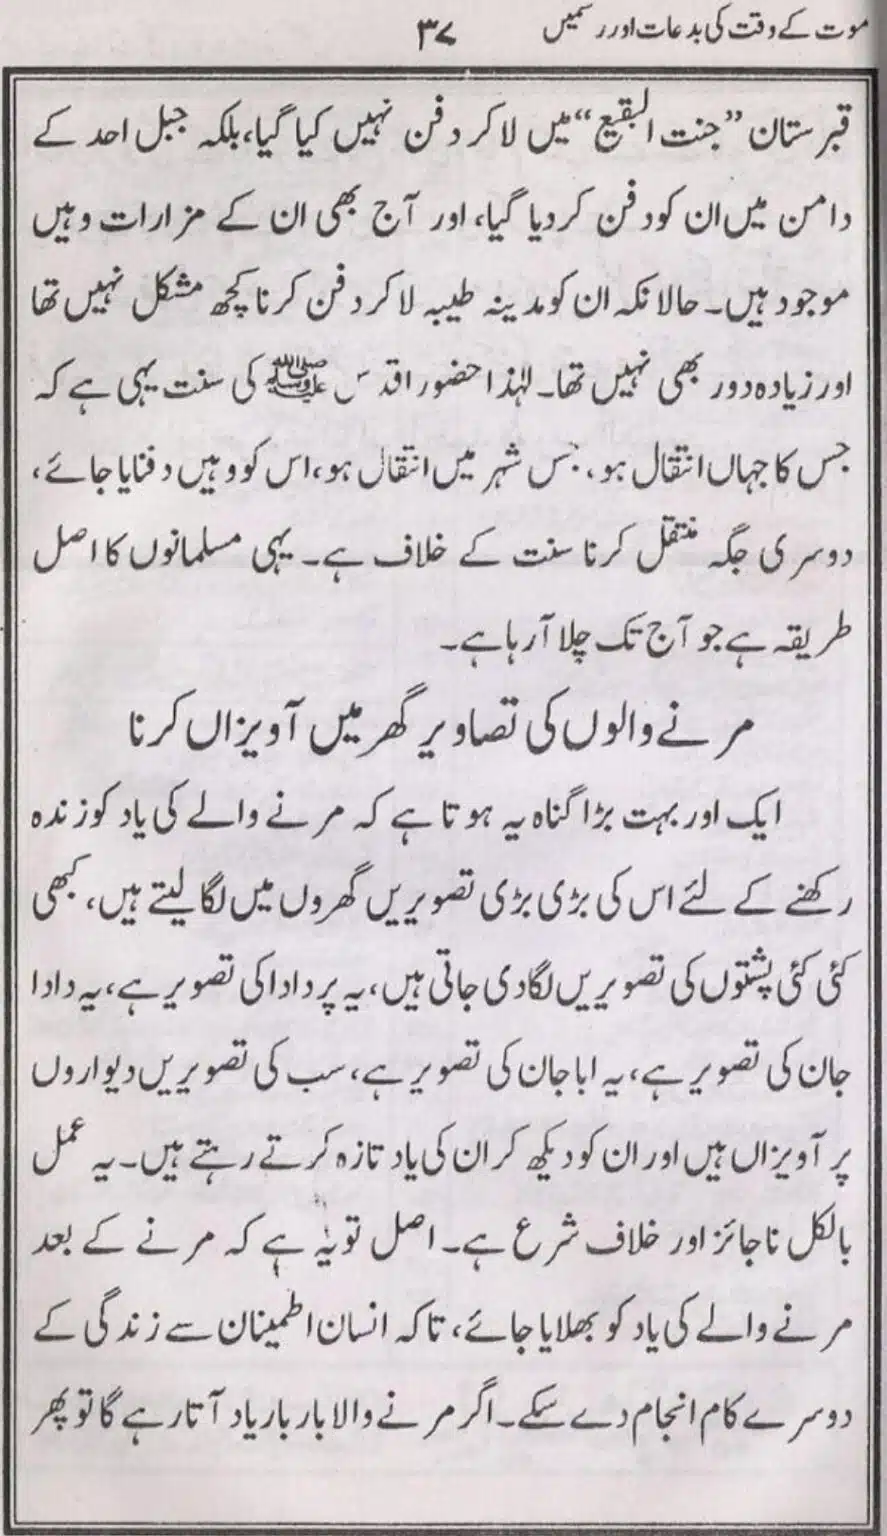 موت کے وقت کی بدعات اور رسمیں ۳۷
قبرستان ”جنت البقیع“ میں لا کر دفن نہیں کیا گیا، بلکہ جبل احد کے
دامن میں ان کو دفن کر دیا گیا، اور آج بھی ان کے مزارات وہیں
موجود ہیں۔ حالانکہ ان کو مدینہ طیبہ لا کر دفن کرنا کچھ مشکل نہیں تھا
اور زیادہ دور بھی نہیں تھا۔ لہٰذا حضور اقدس ﷺ کی سنت یہی ہے کہ
جس کا جہاں انتقال ہو، جس شہر میں انتقال ہو، اس کو وہیں دفنایا جائے،
دوسری جگہ منتقل کرنا سنت کے خلاف ہے۔ یہی مسلمانوں کا اصل
طریقہ ہے جو آج تک چلا آرہا ہے۔
مرنے والوں کی تصاویر گھر میں آویزاں کرنا
ایک اور بہت بڑا گناہ یہ ہوتا ہے کہ مرنے والے کی یاد کو زندہ
رکھنے کے لئے اس کی بڑی بڑی تصویریں گھروں میں لگا لیتے ہیں، کبھی
کئی کئی پشتوں کی تصویریں لگا دی جاتی ہیں، یہ پردادا کی تصویر ہے، یہ دادا
جان کی تصویر ہے، یہ ابا جان کی تصویر ہے، سب کی تصویریں دیواروں
پر آویزاں ہیں اور ان کو دیکھ کر ان کی یاد تازہ کرتے رہتے ہیں۔ یہ عمل
بالکل ناجائز اور خلاف شرع ہے۔ اصل تو یہ ہے کہ مرنے کے بعد
مرنے والے کی یاد کو بھلایا جائے، تاکہ انسان اطمینان سے زندگی کے
دوسرے کام انجام دے سکے۔ اگر مرنے والا بار بار یاد آتا رہے گا تو پھر